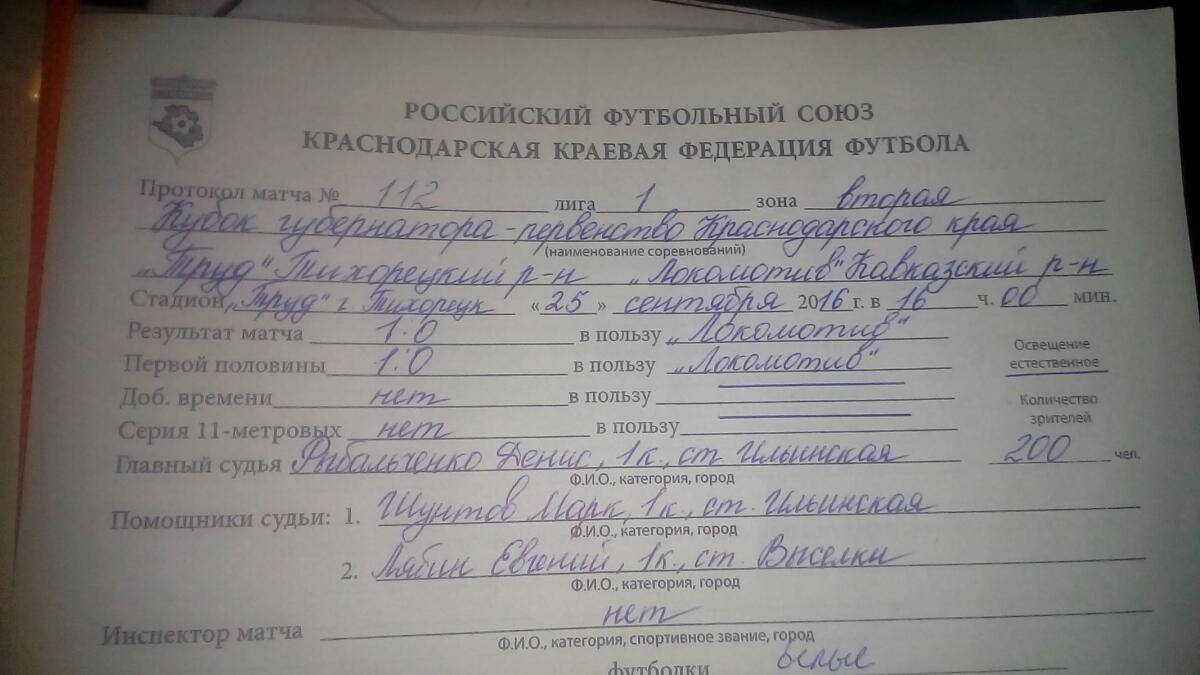 РОССИЙСКИЙ ФУТБОЛЬНЫЙ СОЮЗ
КРАСНОДАРСКАЯ КРАЕВАЯ ФЕДЕРАЦИЯ ФУТБОЛА
Протокол матча № 112 лига 1 зона вторая
Кубок губернатора - первенство Краснодарского края
(наименование соревнований)
„Труд" Тихорецкий р-н „Локомотив" Кавказский р-н
Стадион „Труд" г. Тихорецк «25» сентября 2016 г. в 16 ч. 00 мин.
Результат матча 1:0 в пользу „Локомотив"
Первой половины 1:0 в пользу „Локомотив"
Освещение
естественное
Доб. времени нет в пользу
Серия 11-метровых нет в пользу
Количество
зрителей
Главный судья Рыбальченко Денис, 1к., ст. Ильинская 200 чел.
Ф.И.О., категория, город
Помощники судьи: 1. Шунтов Марк, 1к., ст. Ильинская
Ф.И.О., категория, город
2. Лябин Евгений, 1к., ст. Выселки
Ф.И.О., категория, город
Инспектор матча нет
Ф.И.О., категория, спортивное звание, город
футболки белые